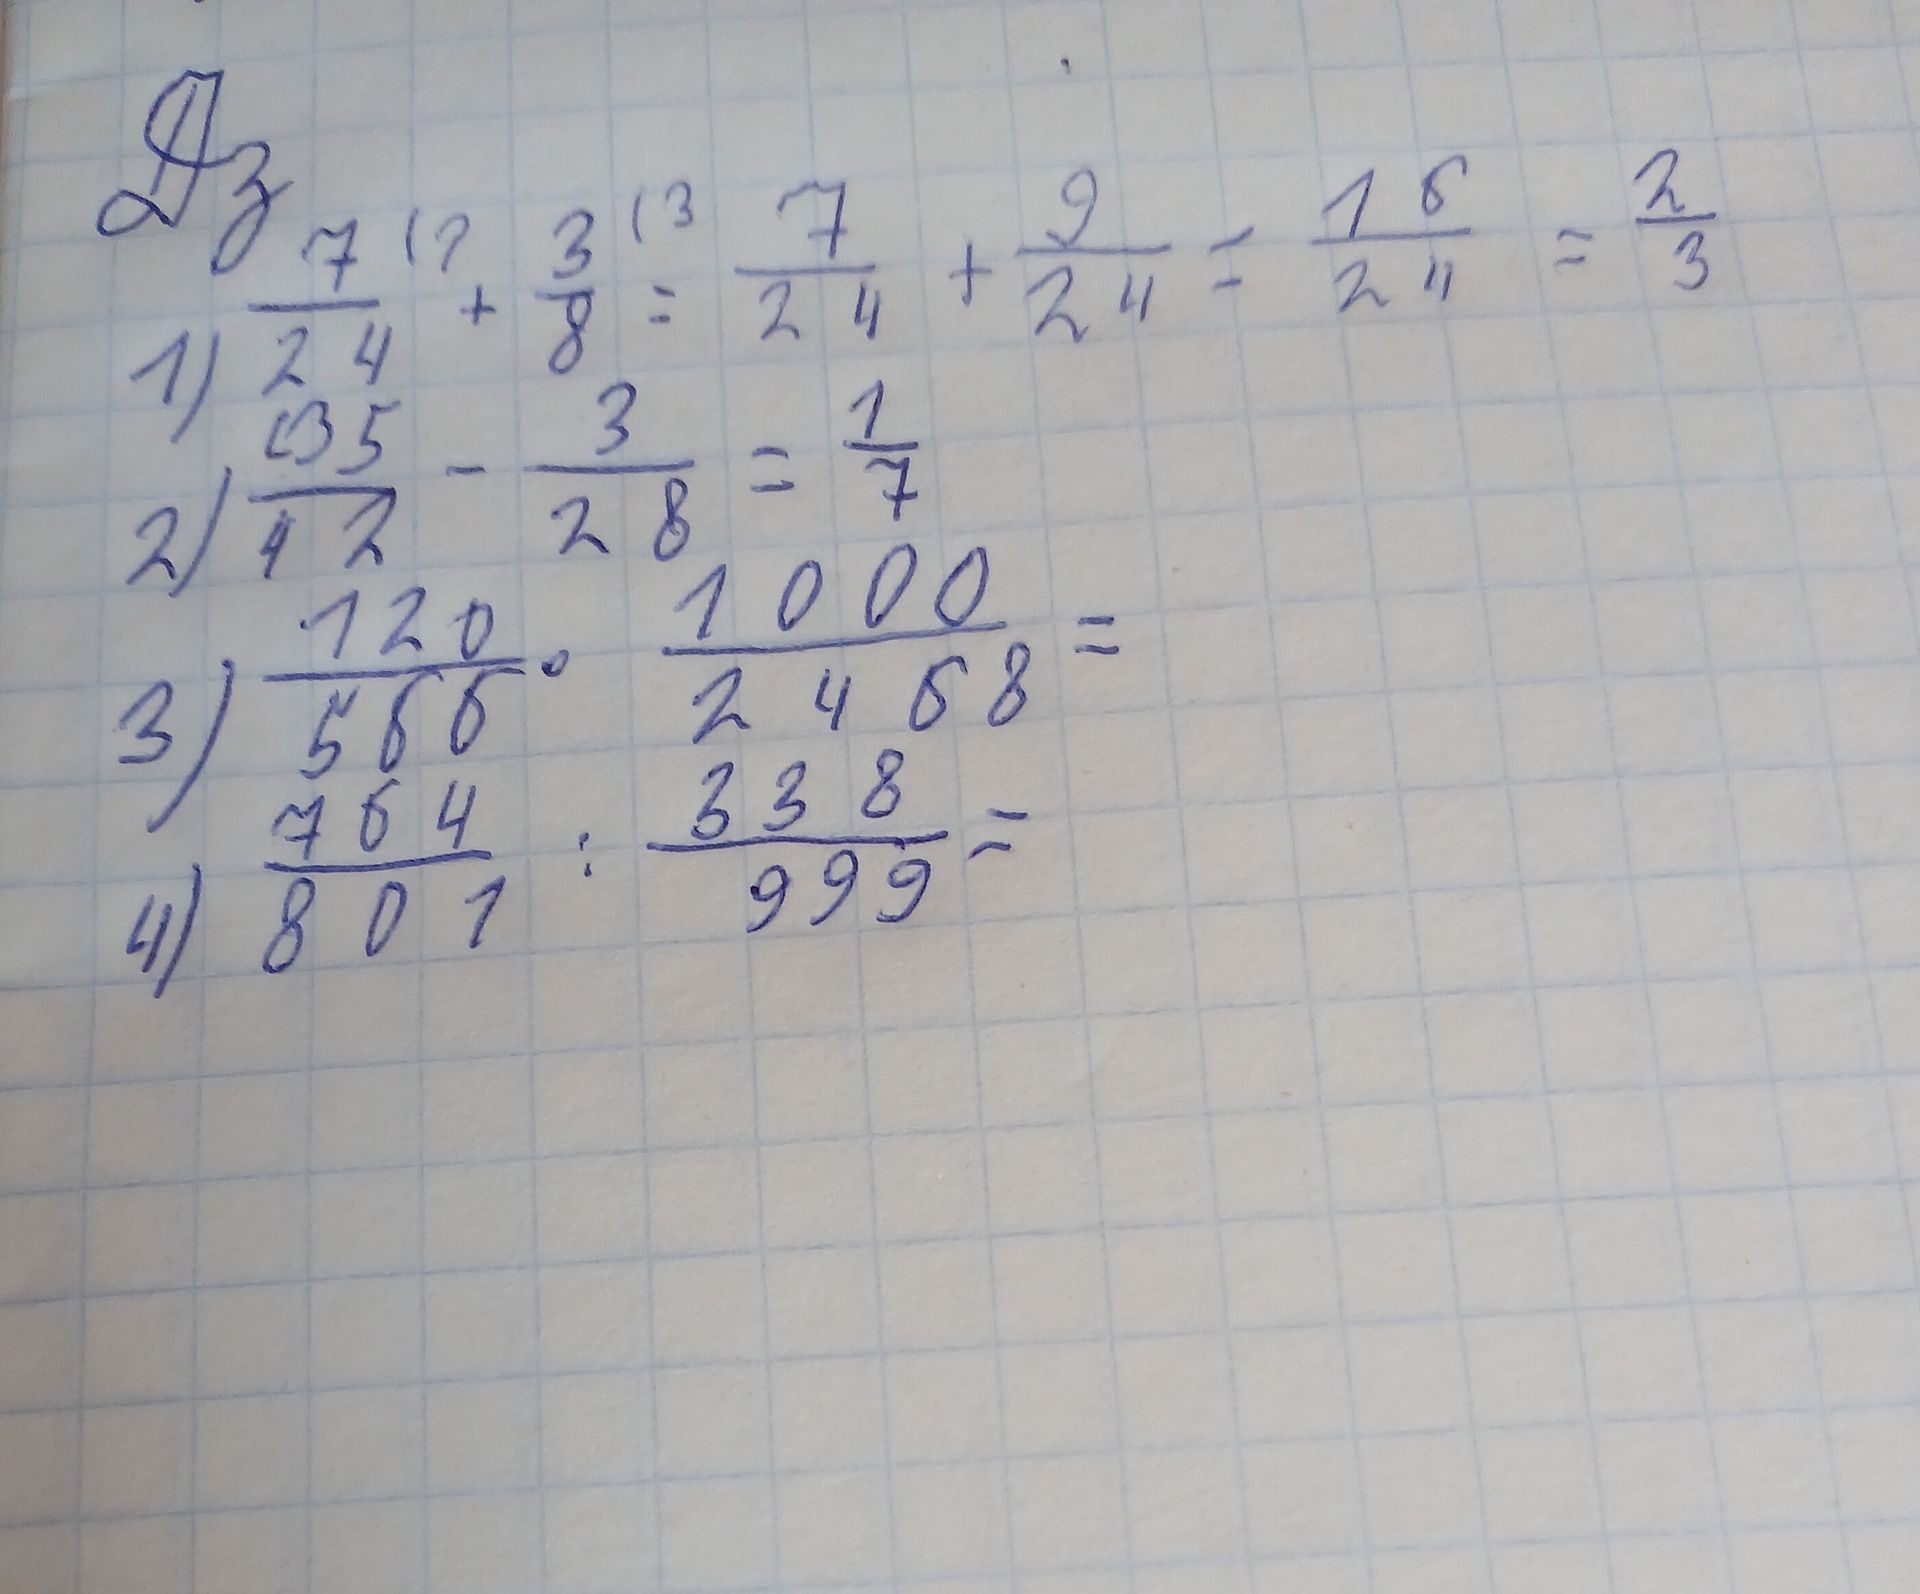 Дз
1) 7/24 (? + 3/8 (3 = 7/24 + 9/24 = 16/24 = 2/3
2) 35/42 - 3/28 = 1/7
3) 120/566 · 1000/2468 =
4) 764/801 : 338/999 =